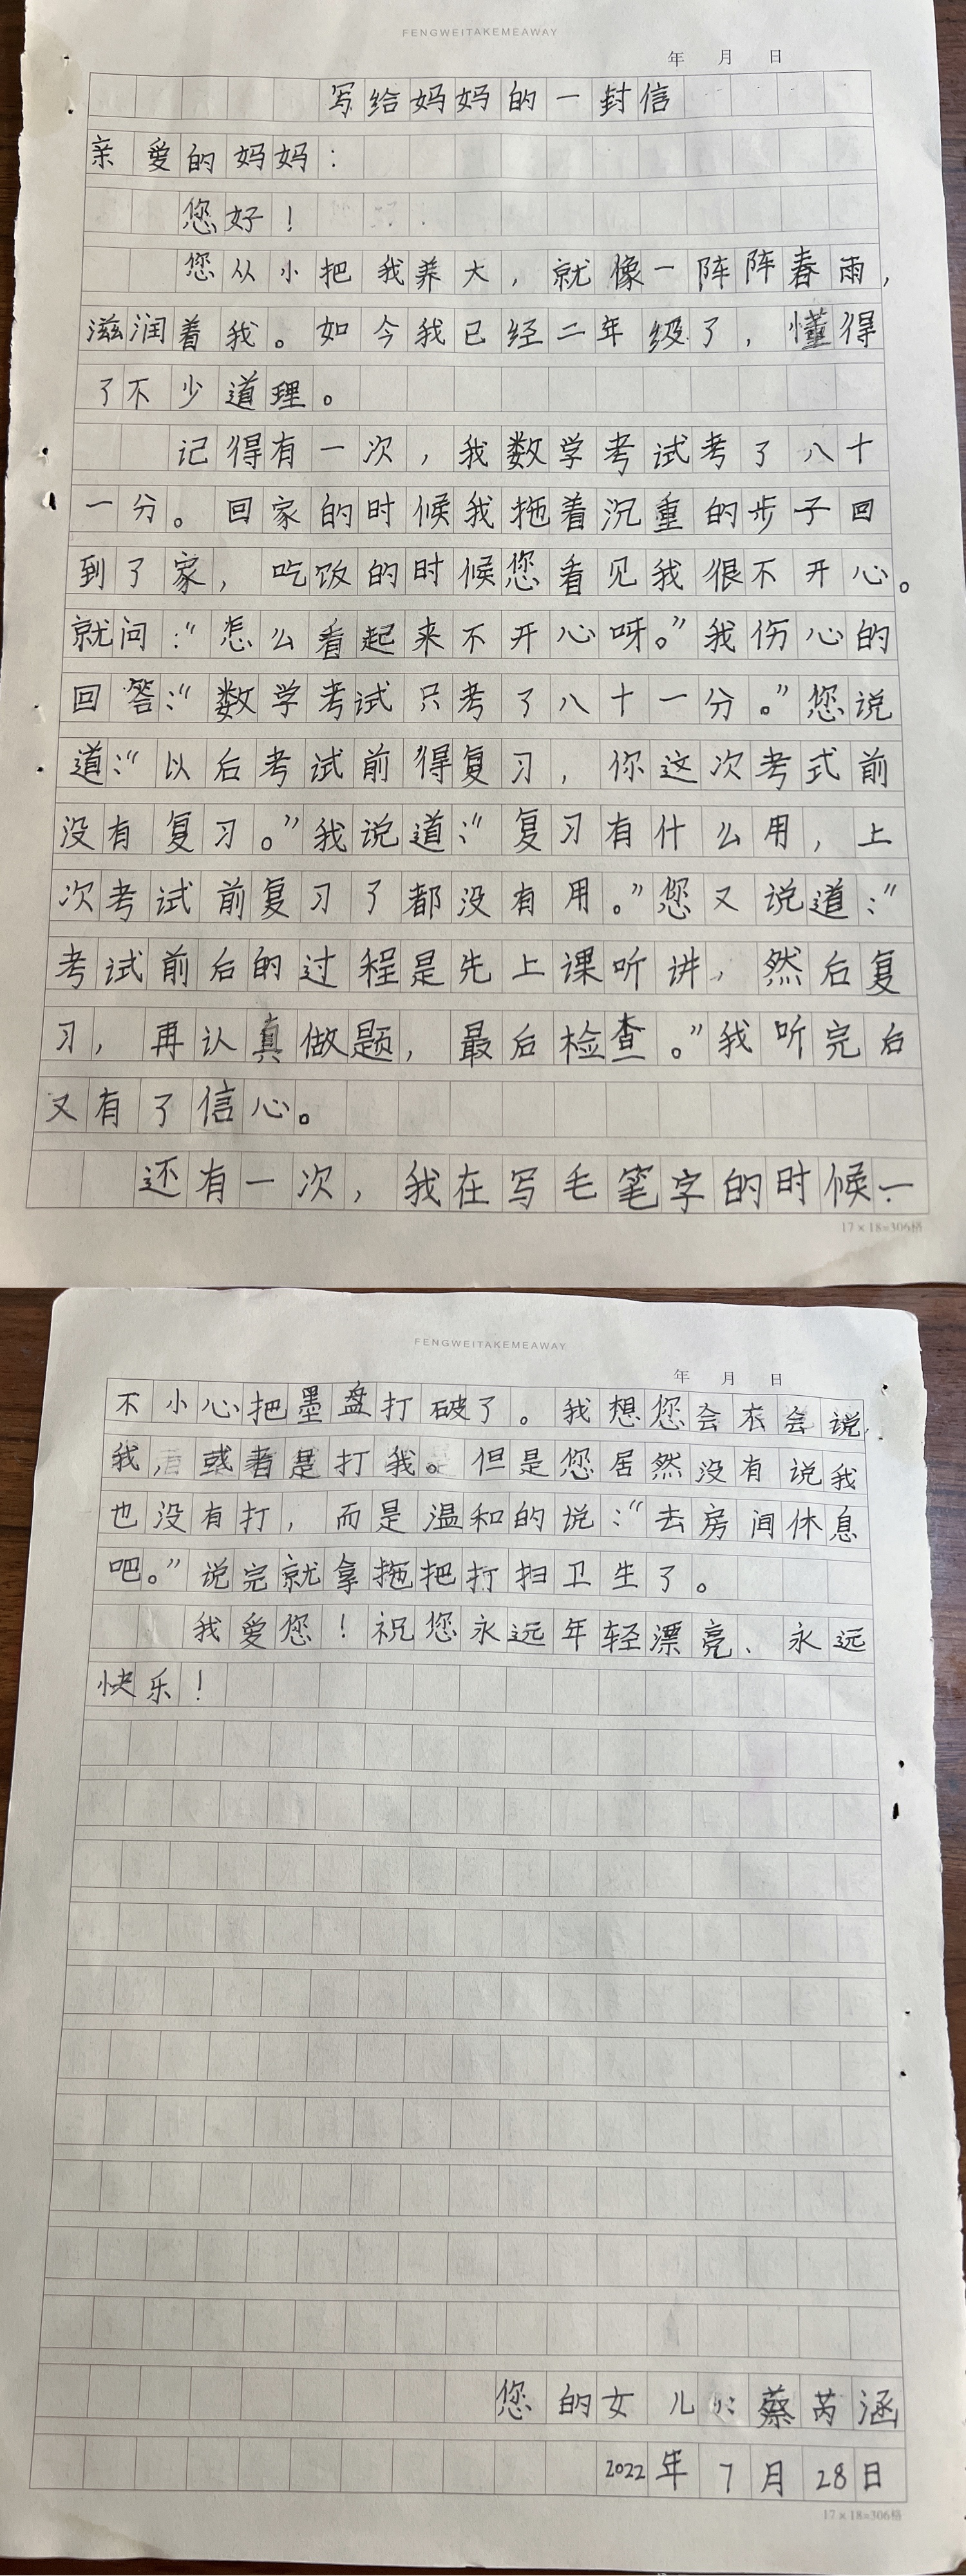 FENGWEITAKEMEAWAY
年 月 日
写给妈妈的一封信
亲爱的妈妈：
您好！
您从小把我养大，就像一阵阵春雨，
滋润着我。如今我已经二年级了，懂得
了不少道理。
记得有一次，我数学考试考了八十
一分。回家的时候我拖着沉重的步子回
到了家，吃饭的时候您看见我很不开心。
就问：“怎么看起来不开心呀。”我伤心的
回答：“数学考试只考了八十一分。”您说
道：“以后考试前得复习，你这次考式前
没有复习。”我说道：“复习有什么用，上
次考试前复习了都没有用。”您又说道：“
考试前后的过程是先上课听讲，然后复
习，再认真做题，最后检查。”我听完后
又有了信心。
还有一次，我在写毛笔字的时候一
17×18=306格
FENGWEITAKEMEAWAY
年 月 日
不小心把墨盘打破了。我想您会 会说
我，或者是打我。但是您居然没有说我
也没有打，而是温和的说：“去房间休息
吧。”说完就拿拖把打扫卫生了。
我爱您！祝您永远年轻漂亮、永远
快乐！
您的女儿：蔡芮涵
2022年7月28日
17×18=306格